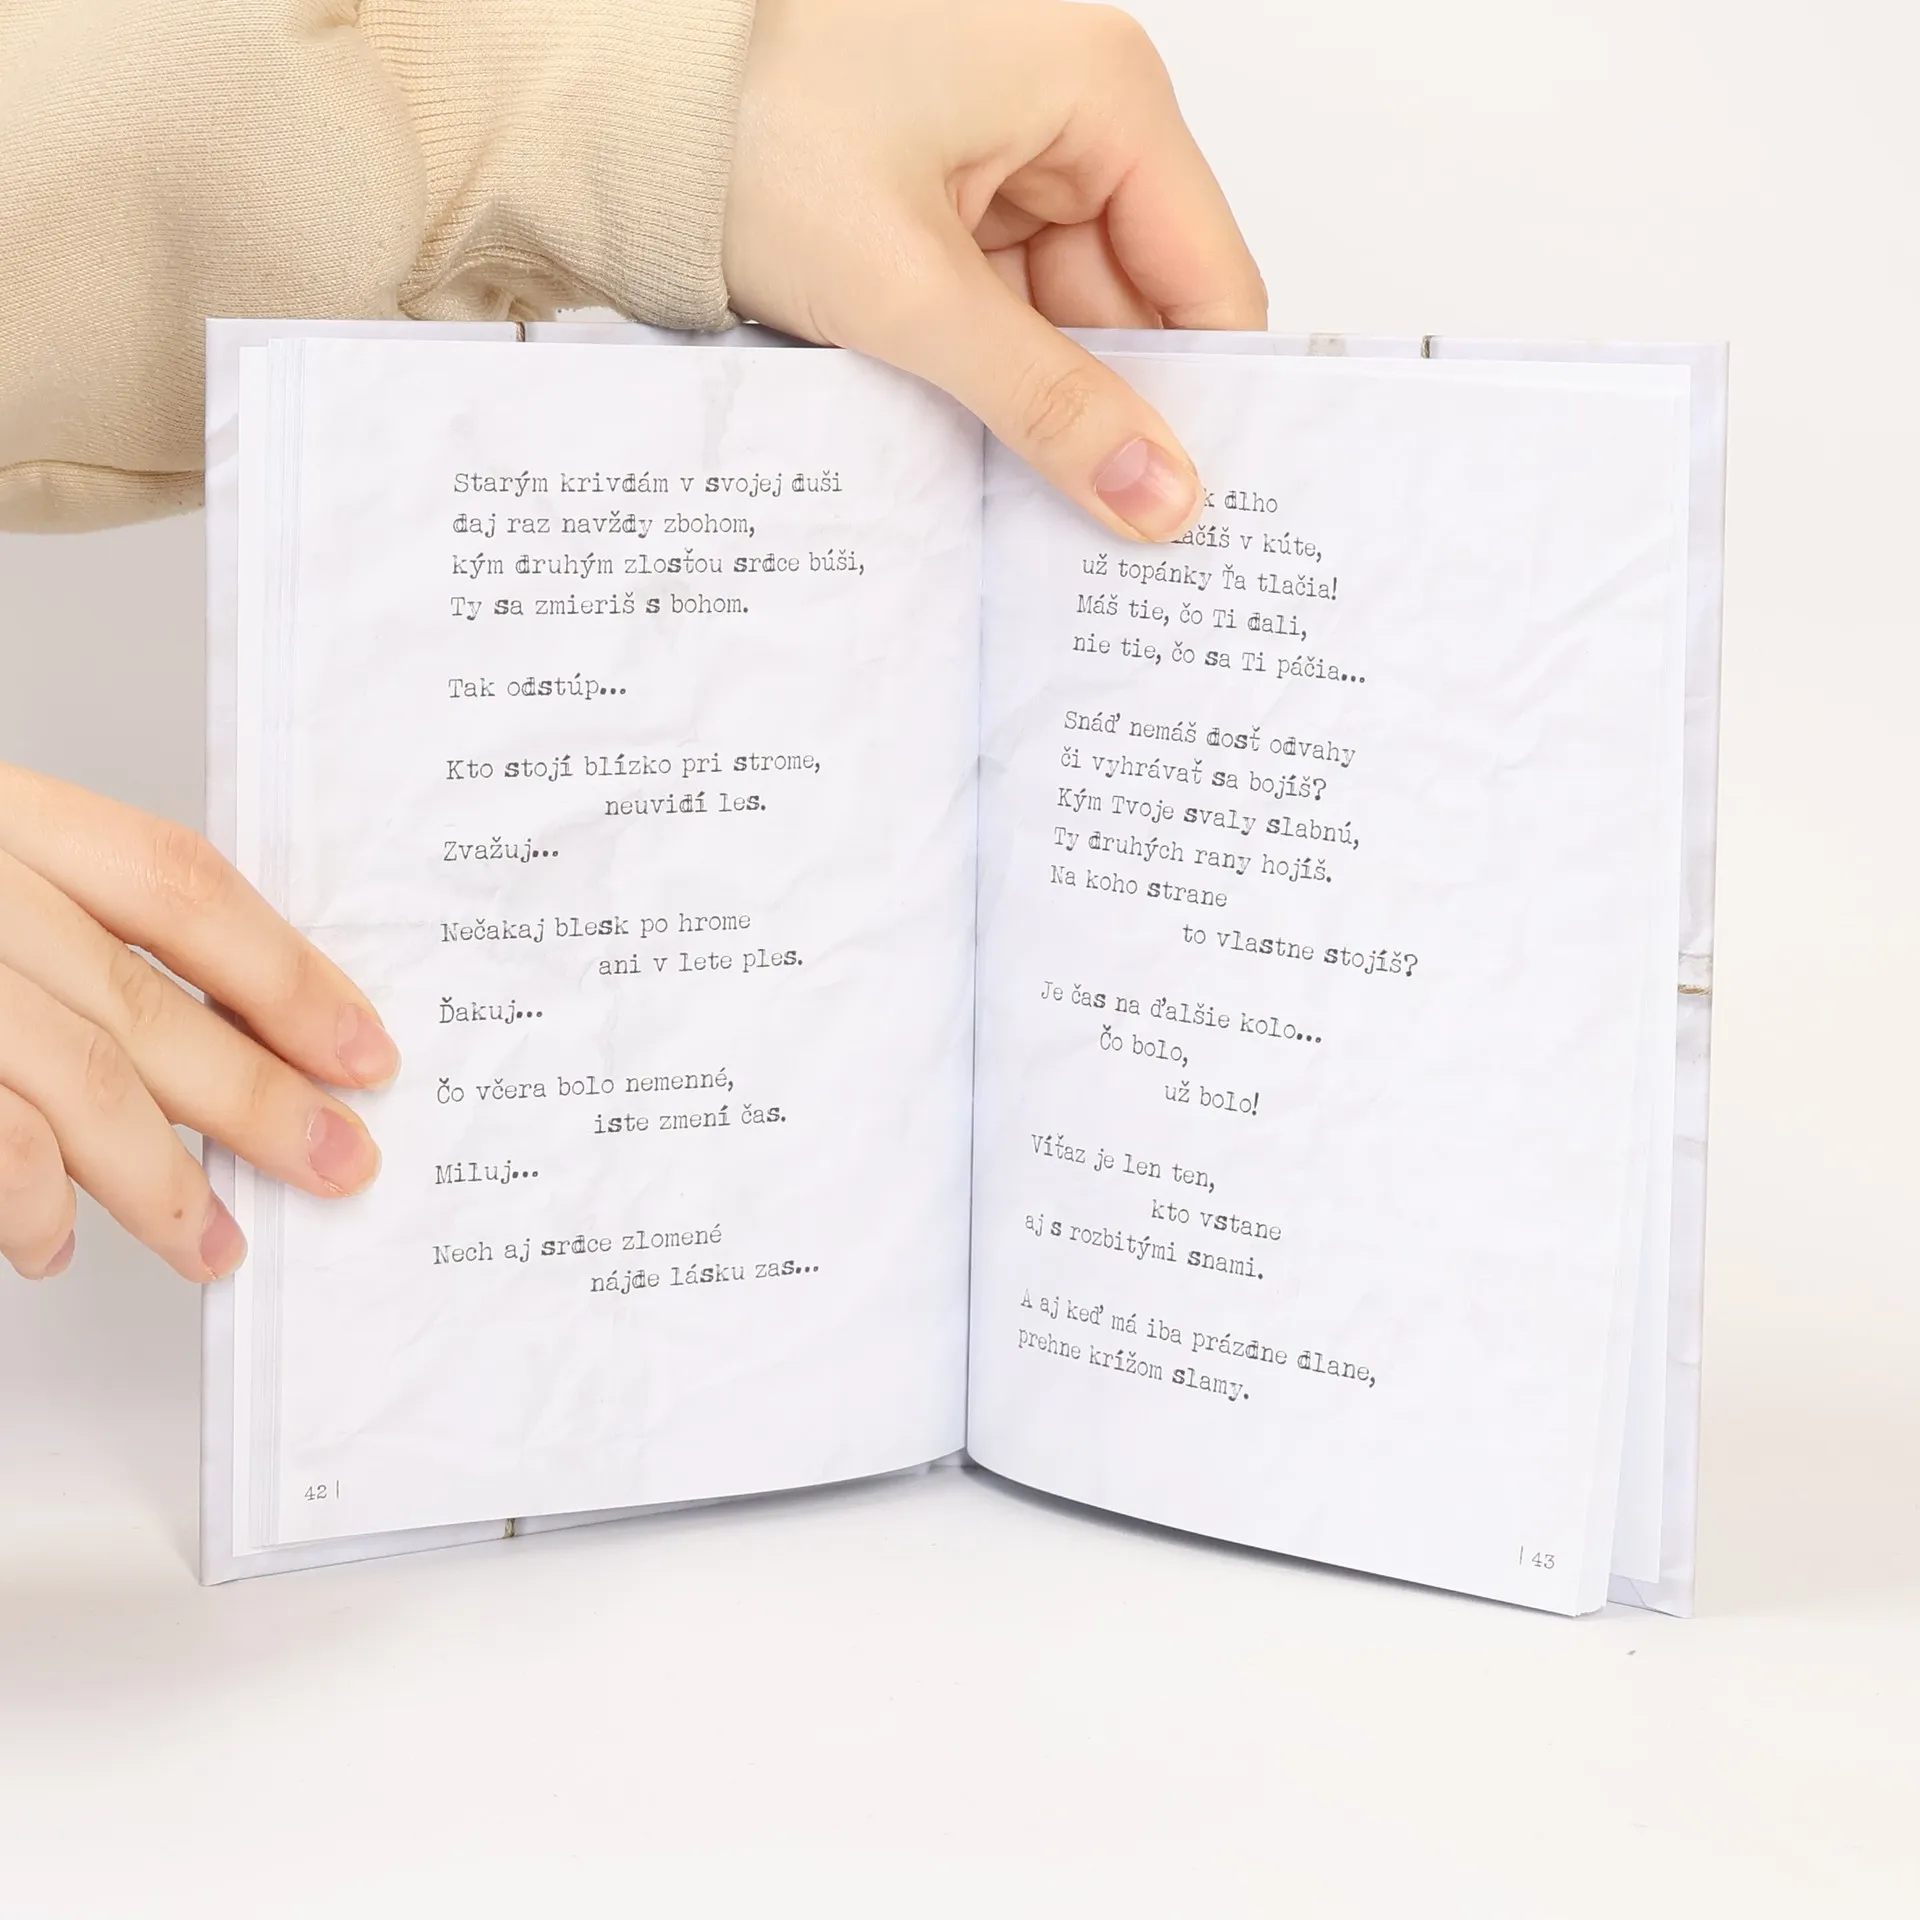 Starým krivdám v svojej duši
daj raz navždy zbohom,
kým druhým zlosťou srdce búši,
Ty sa zmieriš s bohom.
Tak odstúp...
Kto stojí blízko pri strome,
neuvidí les.
Zvažuj...
Nečakaj blesk po hrome
ani v lete ples.
Ďakuj...
Čo včera bolo nemenné,
iste zmení čas.
Miluj...
Nech aj srdce zlomené
nájde lásku zas...
42 |
dlho
v kúte,
už topánky Ťa tlačia!
Máš tie, čo Ti dali,
nie tie, čo sa Ti páčia...
Snáď nemáš dosť odvahy
či vyhrávať sa bojíš?
Kým Tvoje svaly slabnú,
Ty druhých rany hojíš.
Na koho strane
to vlastne stojíš?
Je čas na ďalšie kolo...
Čo bolo,
už bolo!
Víťaz je len ten,
kto vstane
aj s rozbitými snami.
A aj keď má iba prázdne dlane,
prehne krížom slamy.
| 43